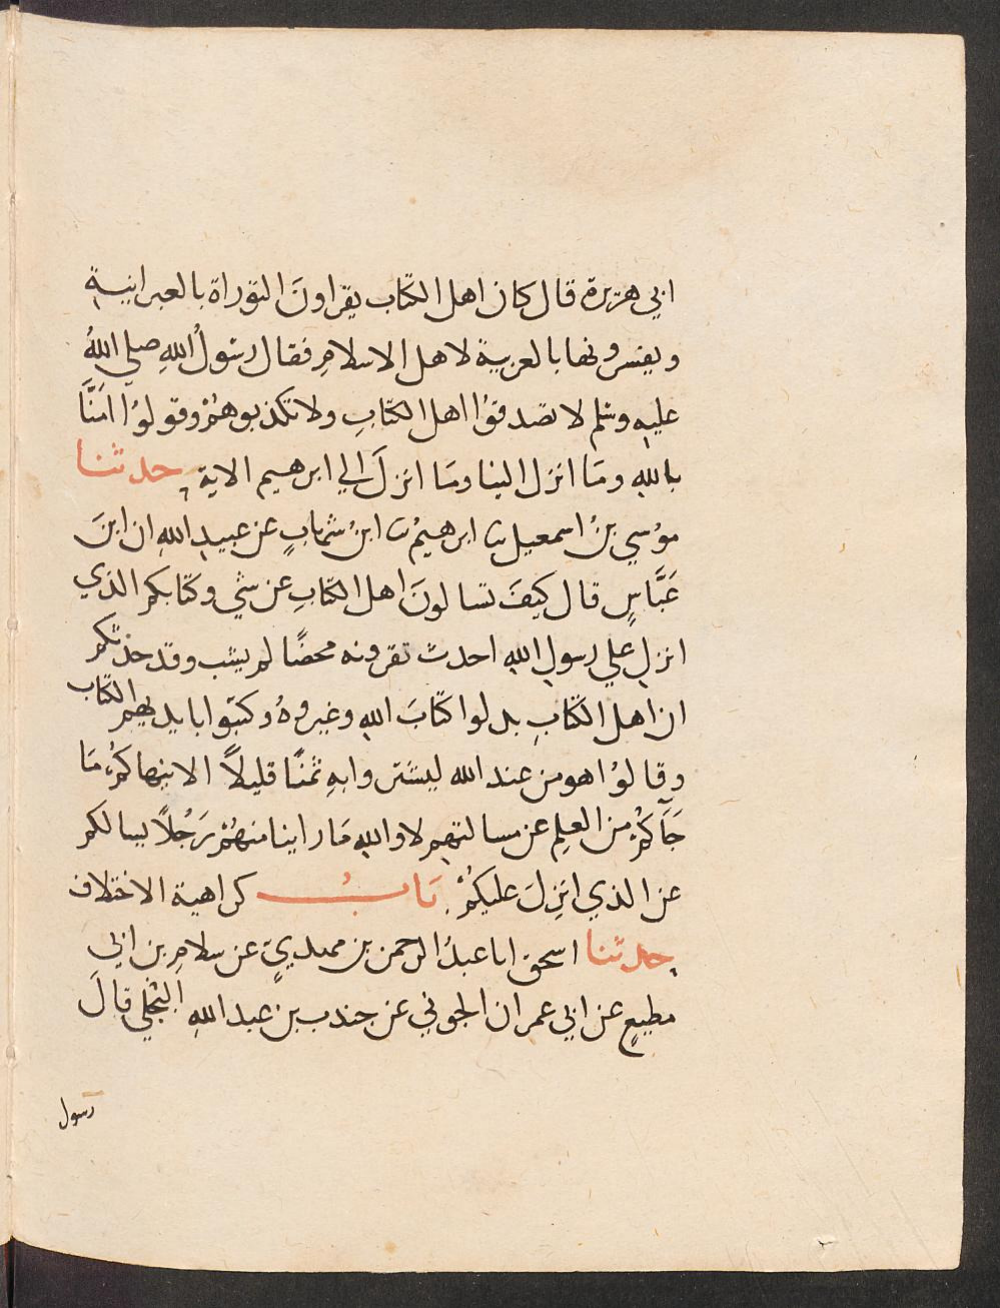 ابي هريرة قال كان اهل الكتاب يقراونَ التوراة بالعبرانيةِ
ويفسرونها بالعربية لاهل الاسلامِ فقال رسولُ اللهِ صلى اللهُ
عليهِ وسلم لا تصدقوُا اهل الكتابِ ولا تكذبوهمُْ وقولوُا امَنَّا
باللهِ ومَا انزل الينا ومَا انزلَ الي ابرهيم الاية حدثنا
موُسي بنُ اسمعيل ثنا ابرهيمُ ثنا ابنُ شهابٍ عن عبيدِ اللهِ ان ابنَ
عَبَّاسٍ قال كيفَ تسالونَ اهل الكتابِ عن شي وكتابكم الذي
انزل علي رسولِ اللهِ احدث تقرونه محضًا لم يشب وقد حدثكم
ان اهل الكتابِ بدلوا كتابَ اللهِ وغيروهُ وكتبوا بايديهم الكتاب
وقالوُا هو من عند الله ليشتروا بهِ ثمنًا قليلاً الا ينهاكمُ مَا
جَآكمُْ من العلِمِ عن مسالتهم لا واللهِ مَا راينا منهمُْ رَجُلاً يسالكم
عن الذي انزِلَ عليكمُْ بَابُ كراهية الاختلاف
حدثنا اسحق انا عبدُ الرحمن بن مهديٍ عن سلامِ بن ابي
مطيعٍ عن ابي عمران الجوني عن جندب بن عبد اللهِ البجلي قالَ
رسول